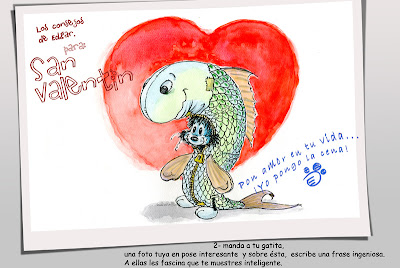 Los consejos
de Edgar.
para:
San
Valentín
Pon amor en tu vida...
¡Yo pongo la cena!
2- manda a tu gatita,
una foto tuya en pose interesante y sobre ésta, escribe una frase ingeniosa.
A ellas les fascina que te muestres inteligente.